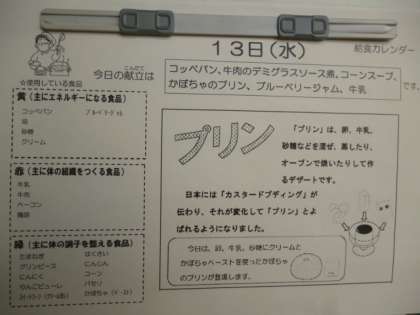 13日(水)
給食カレンダー
こんだて
今日の献立は
コッペパン、牛肉のデミグラスソース煮、コーンスープ、
かぼちゃのプリン、ブルーベリージャム、牛乳
です。
☆使用している食品
黄(主にエネルギーになる食品)
コッペパン
砂糖
クリーム
赤(主に体の組織をつくる食品)
牛乳
牛肉
ベーコン
鶏卵
緑(主に体の調子を整える食品)
たまねぎ
グリンピース
にんじん
にんにく
コーン
りんごピューレ
パセリ
プリン
「プリン」は、卵、牛乳、
砂糖などを混ぜ、蒸したり、
オーブンで焼いたりして作
るデザートです。
日本には「カスタードプディング」が
伝わり、それが変化して「プリン」とよ
ばれるようになりました。
今日は、卵、牛乳、砂糖にクリームと
かぼちゃペーストを使ったかぼちゃ
のプリンが登場します。